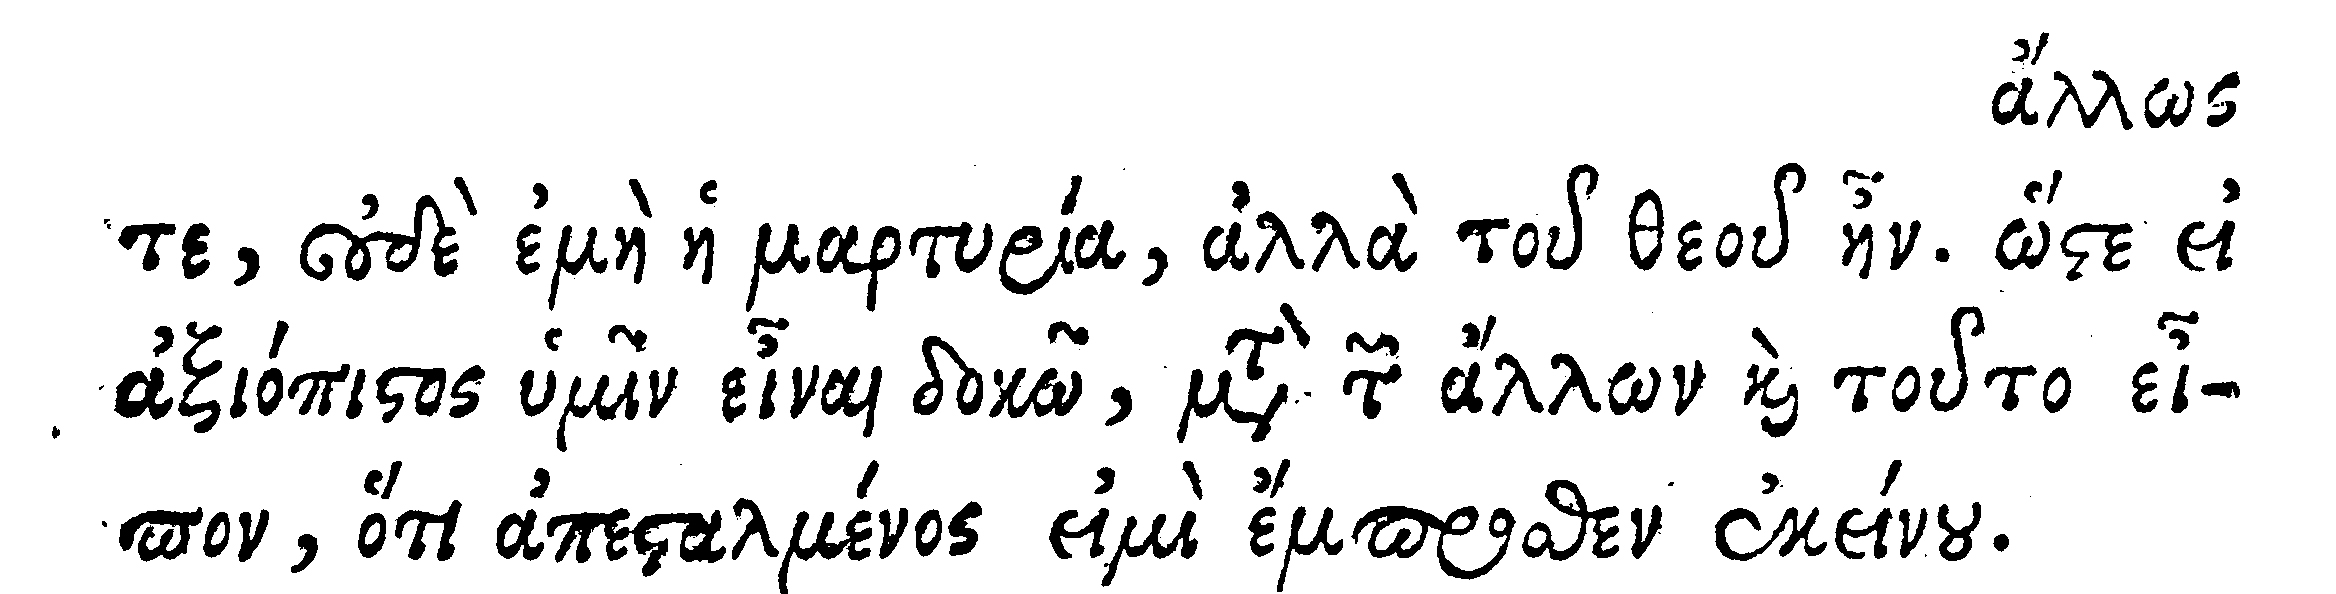 ἄλλως
τε, οὐδὲ ἐμὴ ἡ μαρτυρία, ἀλλὰ τοῦ θεοῦ ἦν. ὥϛε εἰ
ἀξιόπιϛος ὑμῖν εἶναι δοκῶ, μετὰ τῶν ἄλλων καὶ τοῦτο εἶ-
πον, ὅτι ἀπεϛαλμένος εἰμὶ ἔμπροσθεν ἐκείνου.